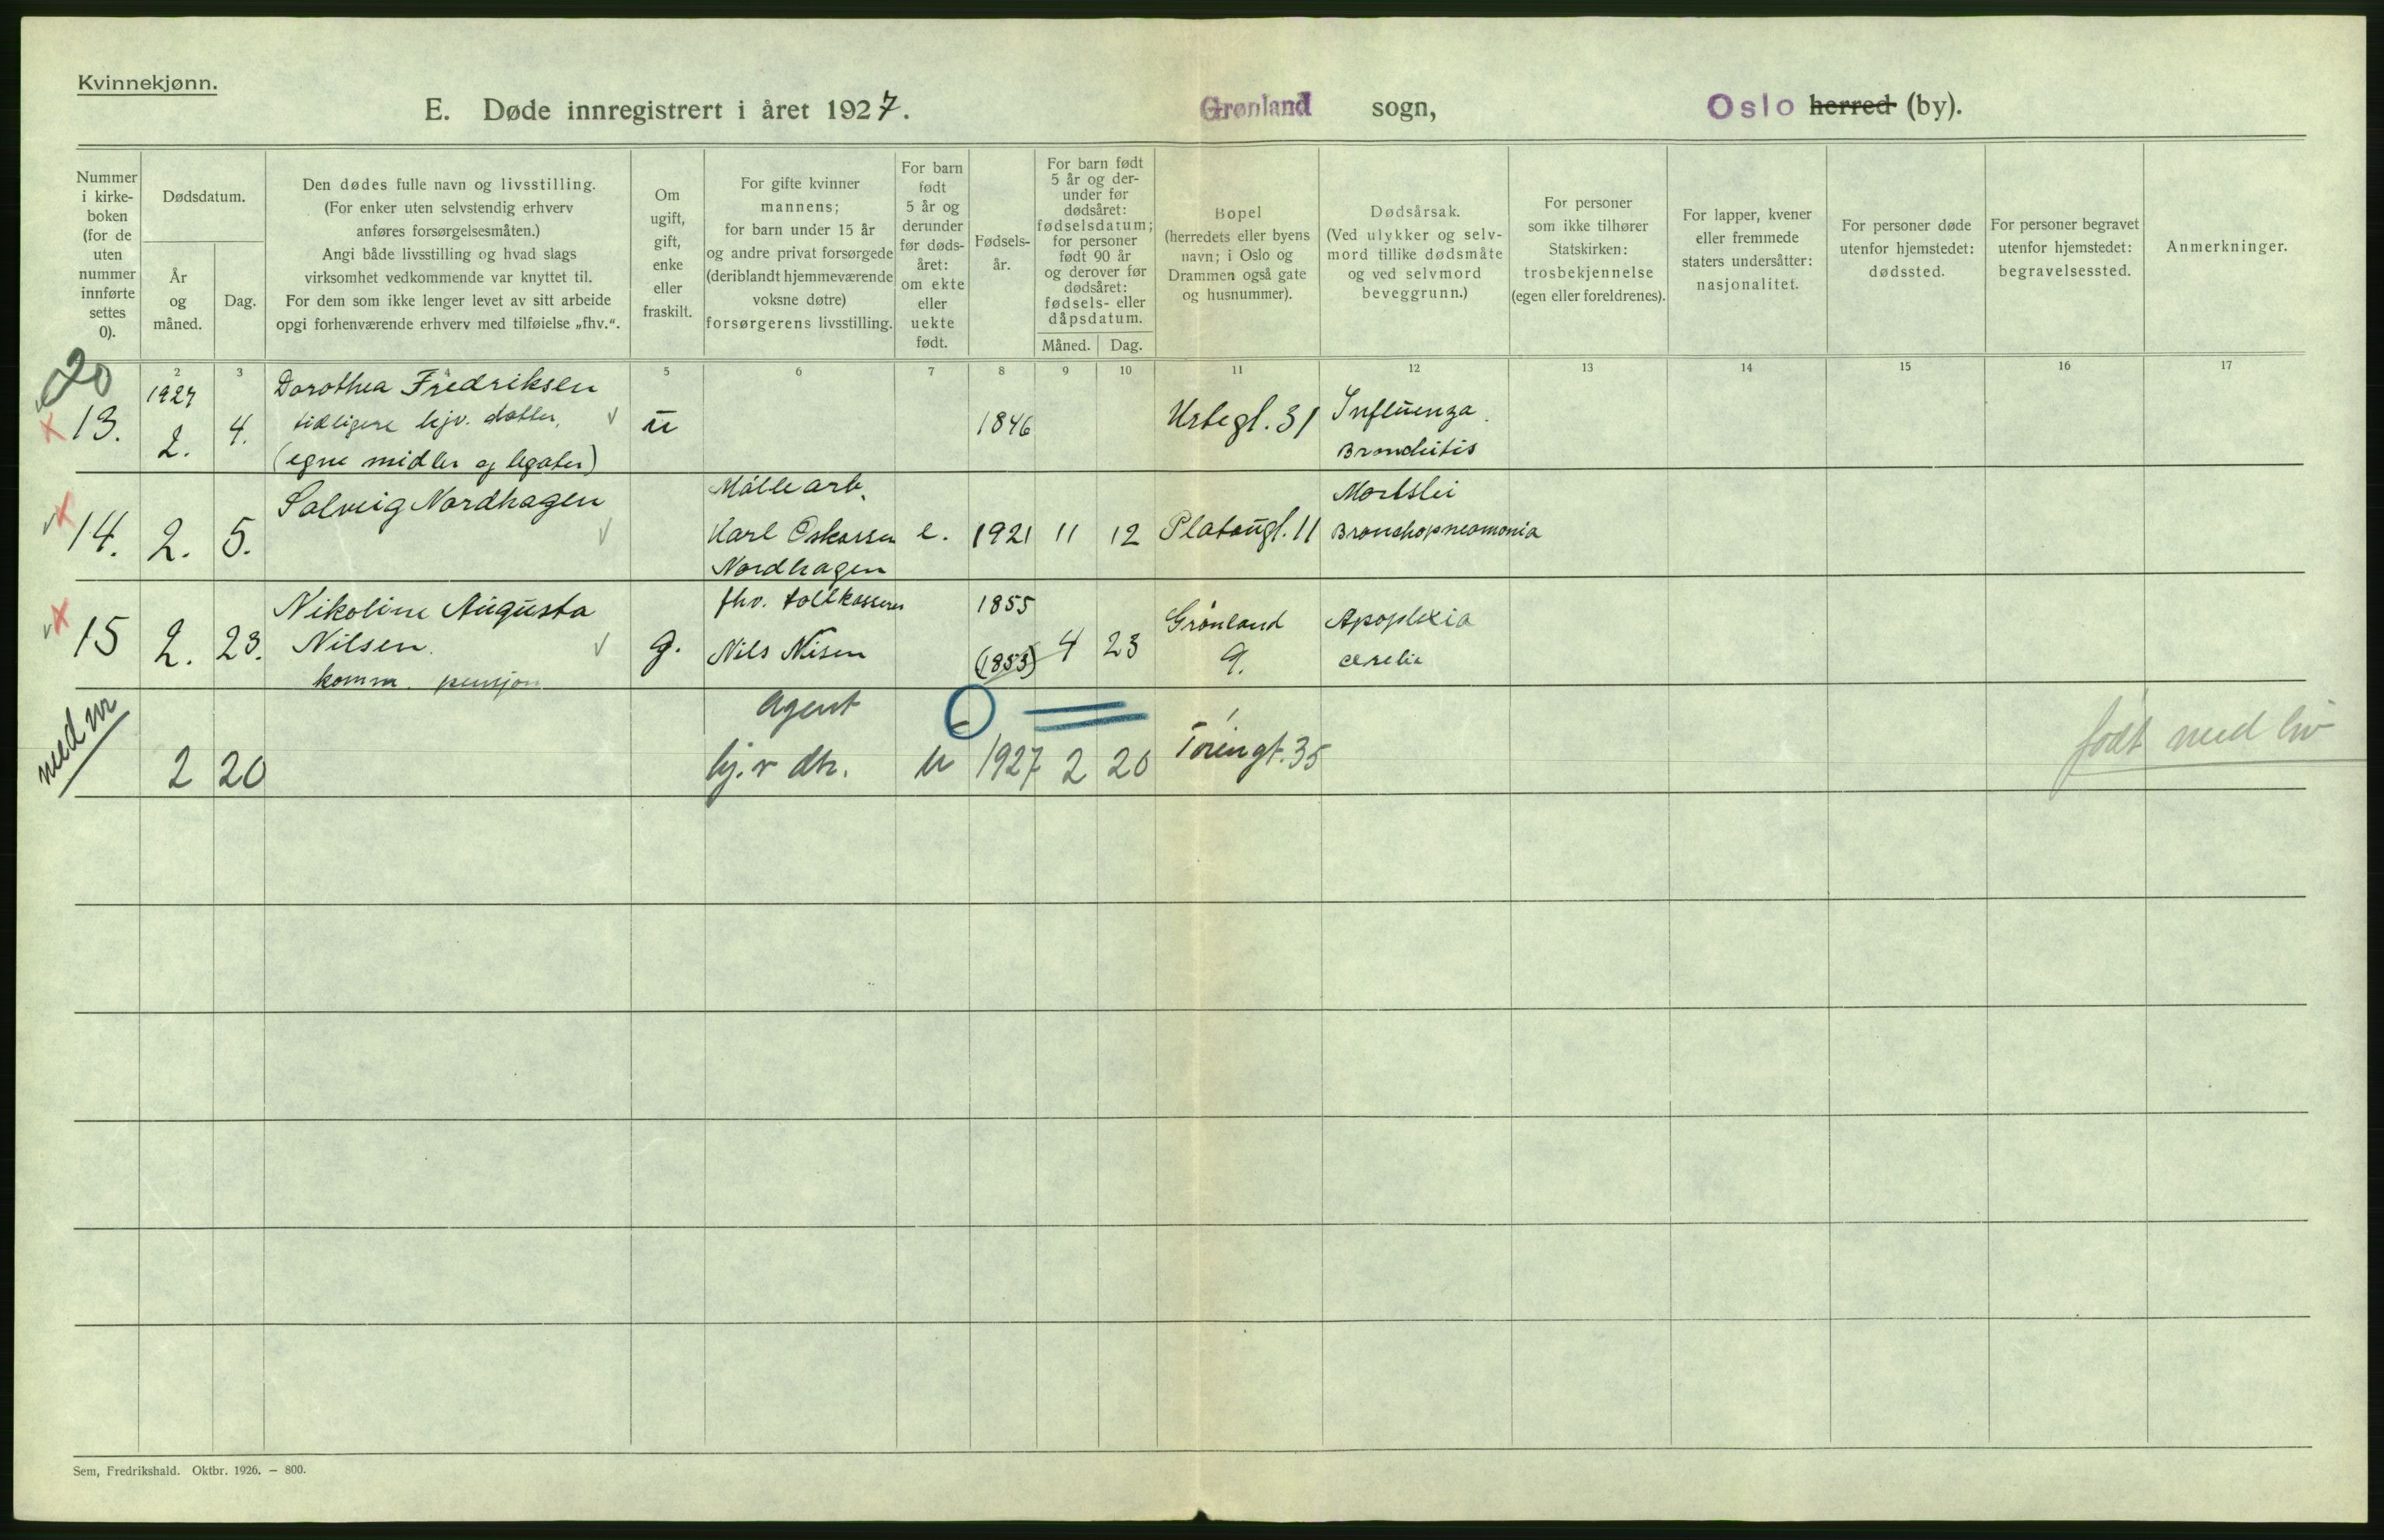 Kvinnekjønn.
E. Døde innregistrert i året 1927.
Grønland sogn,
Oslo herred (by).
Nummer
i kirke-
boken
(for de
uten
nummer
innførte
settes
0).
Dødsdatum.
År
og
måned.
Dag.
Den dødes fulle navn og livsstilling.
(For enker uten selvstendig erhverv
anføres forsørgelsesmåten.)
Angi både livsstilling og hvad slags
virksomhet vedkommende var knyttet til.
For dem som ikke lenger levet av sitt arbeide
opgi forhenværende erhverv med tilføielse „fhv.“.
Om
ugift,
gift,
enke
eller
fraskilt.
For gifte kvinner
mannens;
for barn under 15 år
og andre privat forsørgede
(deriblandt hjemmeværende
voksne døtre)
forsørgerens livsstilling.
For barn
født
5 år og
derunder
før døds-
året:
om ekte
eller
uekte
født.
Fødsels-
år.
For barn født
5 år og der-
under før
dødsåret:
fødselsdatum;
for personer
født 90 år
og derover før
dødsåret:
fødsels- eller
dåpsdatum.
Måned. Dag.
Bopel
(herredets eller byens
navn; i Oslo og
Drammen også gate
og husnummer).
Dødsårsak.
(Ved ulykker og selv-
mord tillike dødsmåte
og ved selvmord
beveggrunn.)
For personer
som ikke tilhører
Statskirken:
trosbekjennelse
(egen eller foreldrenes).
For lapper, kvener
eller fremmede
staters undersåtter:
nasjonalitet.
For personer døde
utenfor hjemstedet:
dødssted.
For personer begravet
utenfor hjemstedet:
begravelsessted.
Anmerkninger.
20
2 3 5 6 7 8 9 10 11 12 13 14 15 16 17
13.
1927
2.
4.
Dorothea Fredriksen
tidligere hjv. datter,
(egne midler og legater)
u
1846
Urtegt. 31
Influenza.
Bronchitis
14.
2.
5.
Solveig Nordhagen
Møllearb.
Karl Oskarsen
Nordhagen
e.
1921
11
12
Platougt. 11
Morbilli
Bronchopneomonia
15
2.
23.
Nikoline Augusta
Nilsen.
komm. pensjon
g.
fhv. toltkasserer
Nils Nisen
1855
(1853)
4
23
Grønland
9.
Apoplexia
cerebri
med nr
2
20
Agent
hj. v dtr.
u
1927
2
20
Tøiengt. 35
født med liv
Sem, Fredrikshald. Oktbr. 1926. — 800.